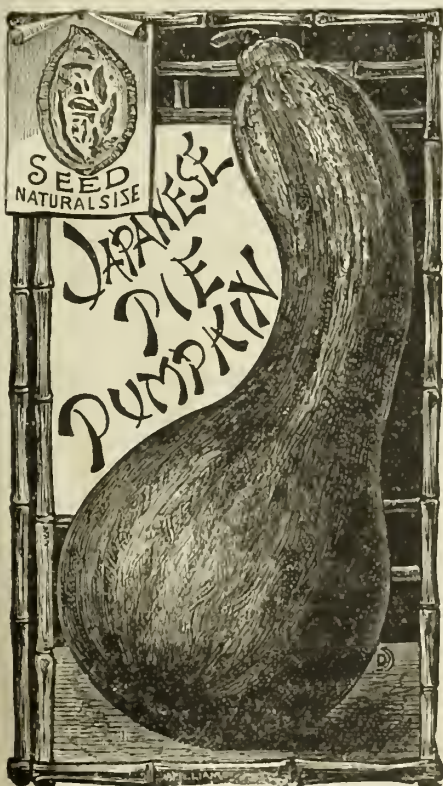 SEED
NATURAL SIZE
JAPANESE
PIE
PUMPKIN